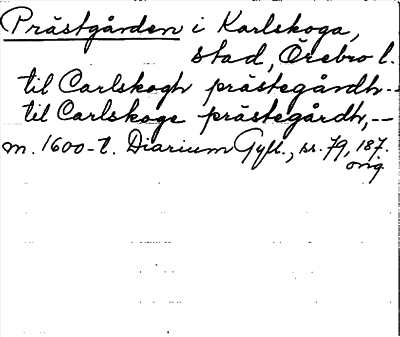 Prästgården i Karlskoga,
stad, Örebro l.
til Carlskogh prästegårdh --
til Carlskoge prästegårdh, --
m. 1600-t. Diarium Gyll., sr. 79, 187.
orig.